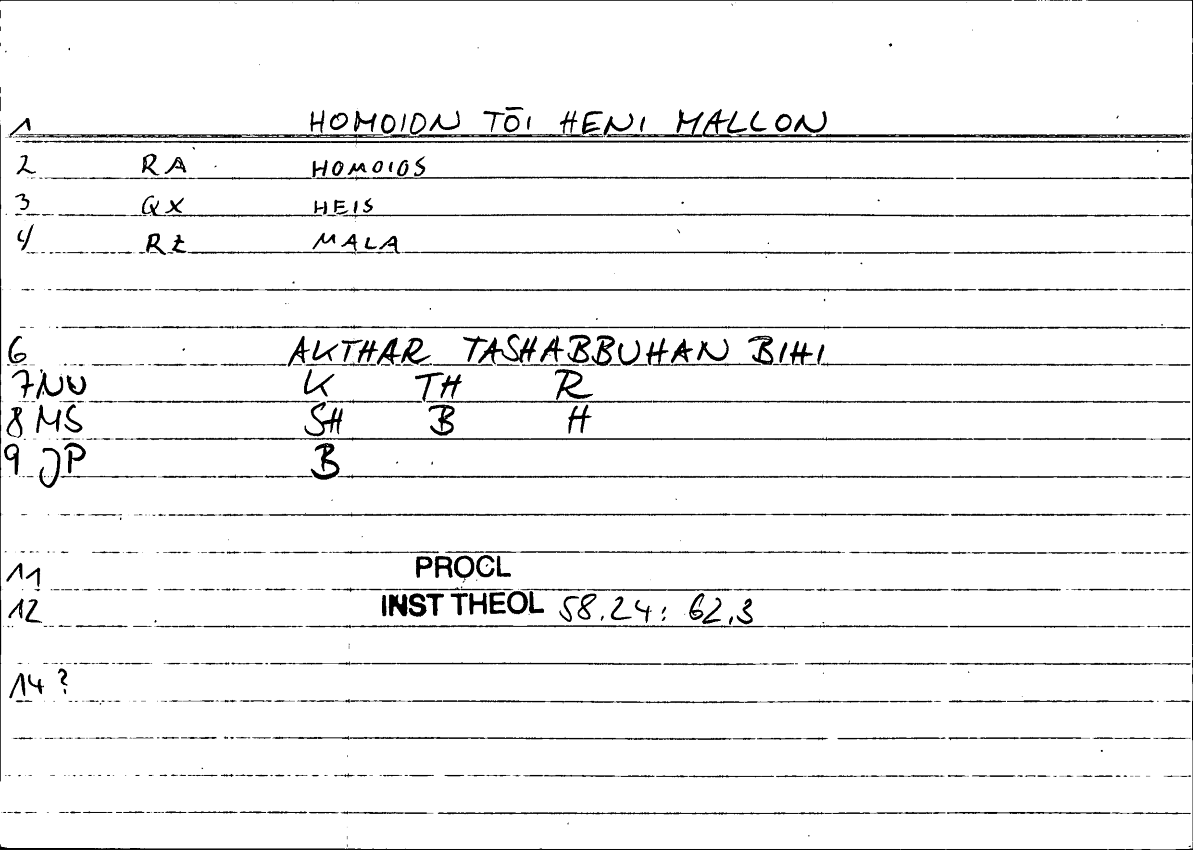 1 HOMOION TŌI HENI MALLON
2 RA HOMOIOS
3 QX HEIS
4 RZ MALA
6 AKTHAR TASHABBUHAN BIHI
7 NU K TH R
8 MS SH B H
9 JP B
11 PROCL
12 INST THEOL 58.24: 62,3
14 ?